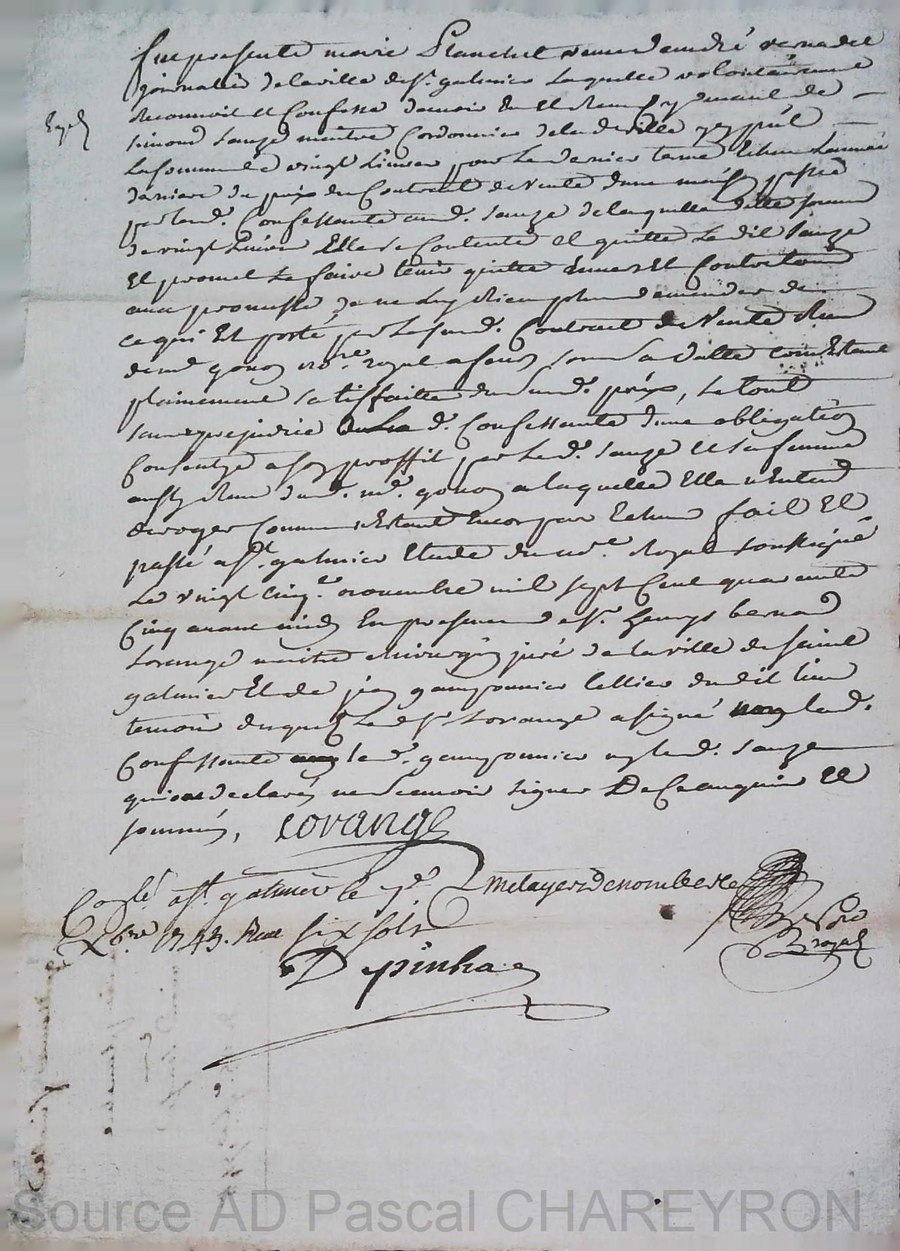 fut presente marie Planchet veuve d'andré vernadet
journalier de la ville de st. galmier laquelle volontairement
Reconnoit et Confesse d'avoir eu et Receu de
simond sauze maitre Cordonnier de lad. ville
La somme de vingt Livres pour le dernier terme Echeu L'année
derniere du prix du Contrat de Vente d'une maison passé
par lad. Confessante aud. sauze de laquelle ditte somme
de vingt Livres Elle se Contente et quitte Le dit sauze
Et promet Le faire tenir quitte Envers Et Contre tous
avec promesse de ne luy Rien plus demander de
ce qui Est porté par Le susd. Contrat de Vente Receu
de me. gonon no.re royal a sous sa datte
plainement satisfaitte du susd. prix, Le tout
sans prejudice a lad. Confessante d'une obligation
Consentye a son proffit par Led. sauze Et sa femme
aussy Receue dud. me. gonon a laquelle Elle n'Entend
deroger Comme n'Estant Encor pas Echeue fait Et
passé a st. galmier Etude du no.re Royal soussigné
Le vingt cinq.e novembre mil sept Cent quarante
Cinq avant midy En presence de sr. bernard
Lorange maitre chirurgien juré de la ville de saint
galmier Et de jean gampounier du dit lieu
temoins desquels Led. sr. Lorange a signé non lad.
Confessante led. gampounier ny led. sauze
qui ont declaré ne sçavoir signer De Ce Enquis Et
sommés, Lorange
Conlé a st. galmier le 7e
Xbre 1745. Receu six sols
Depinhac
royal
Source AD Pascal CHAREYRON